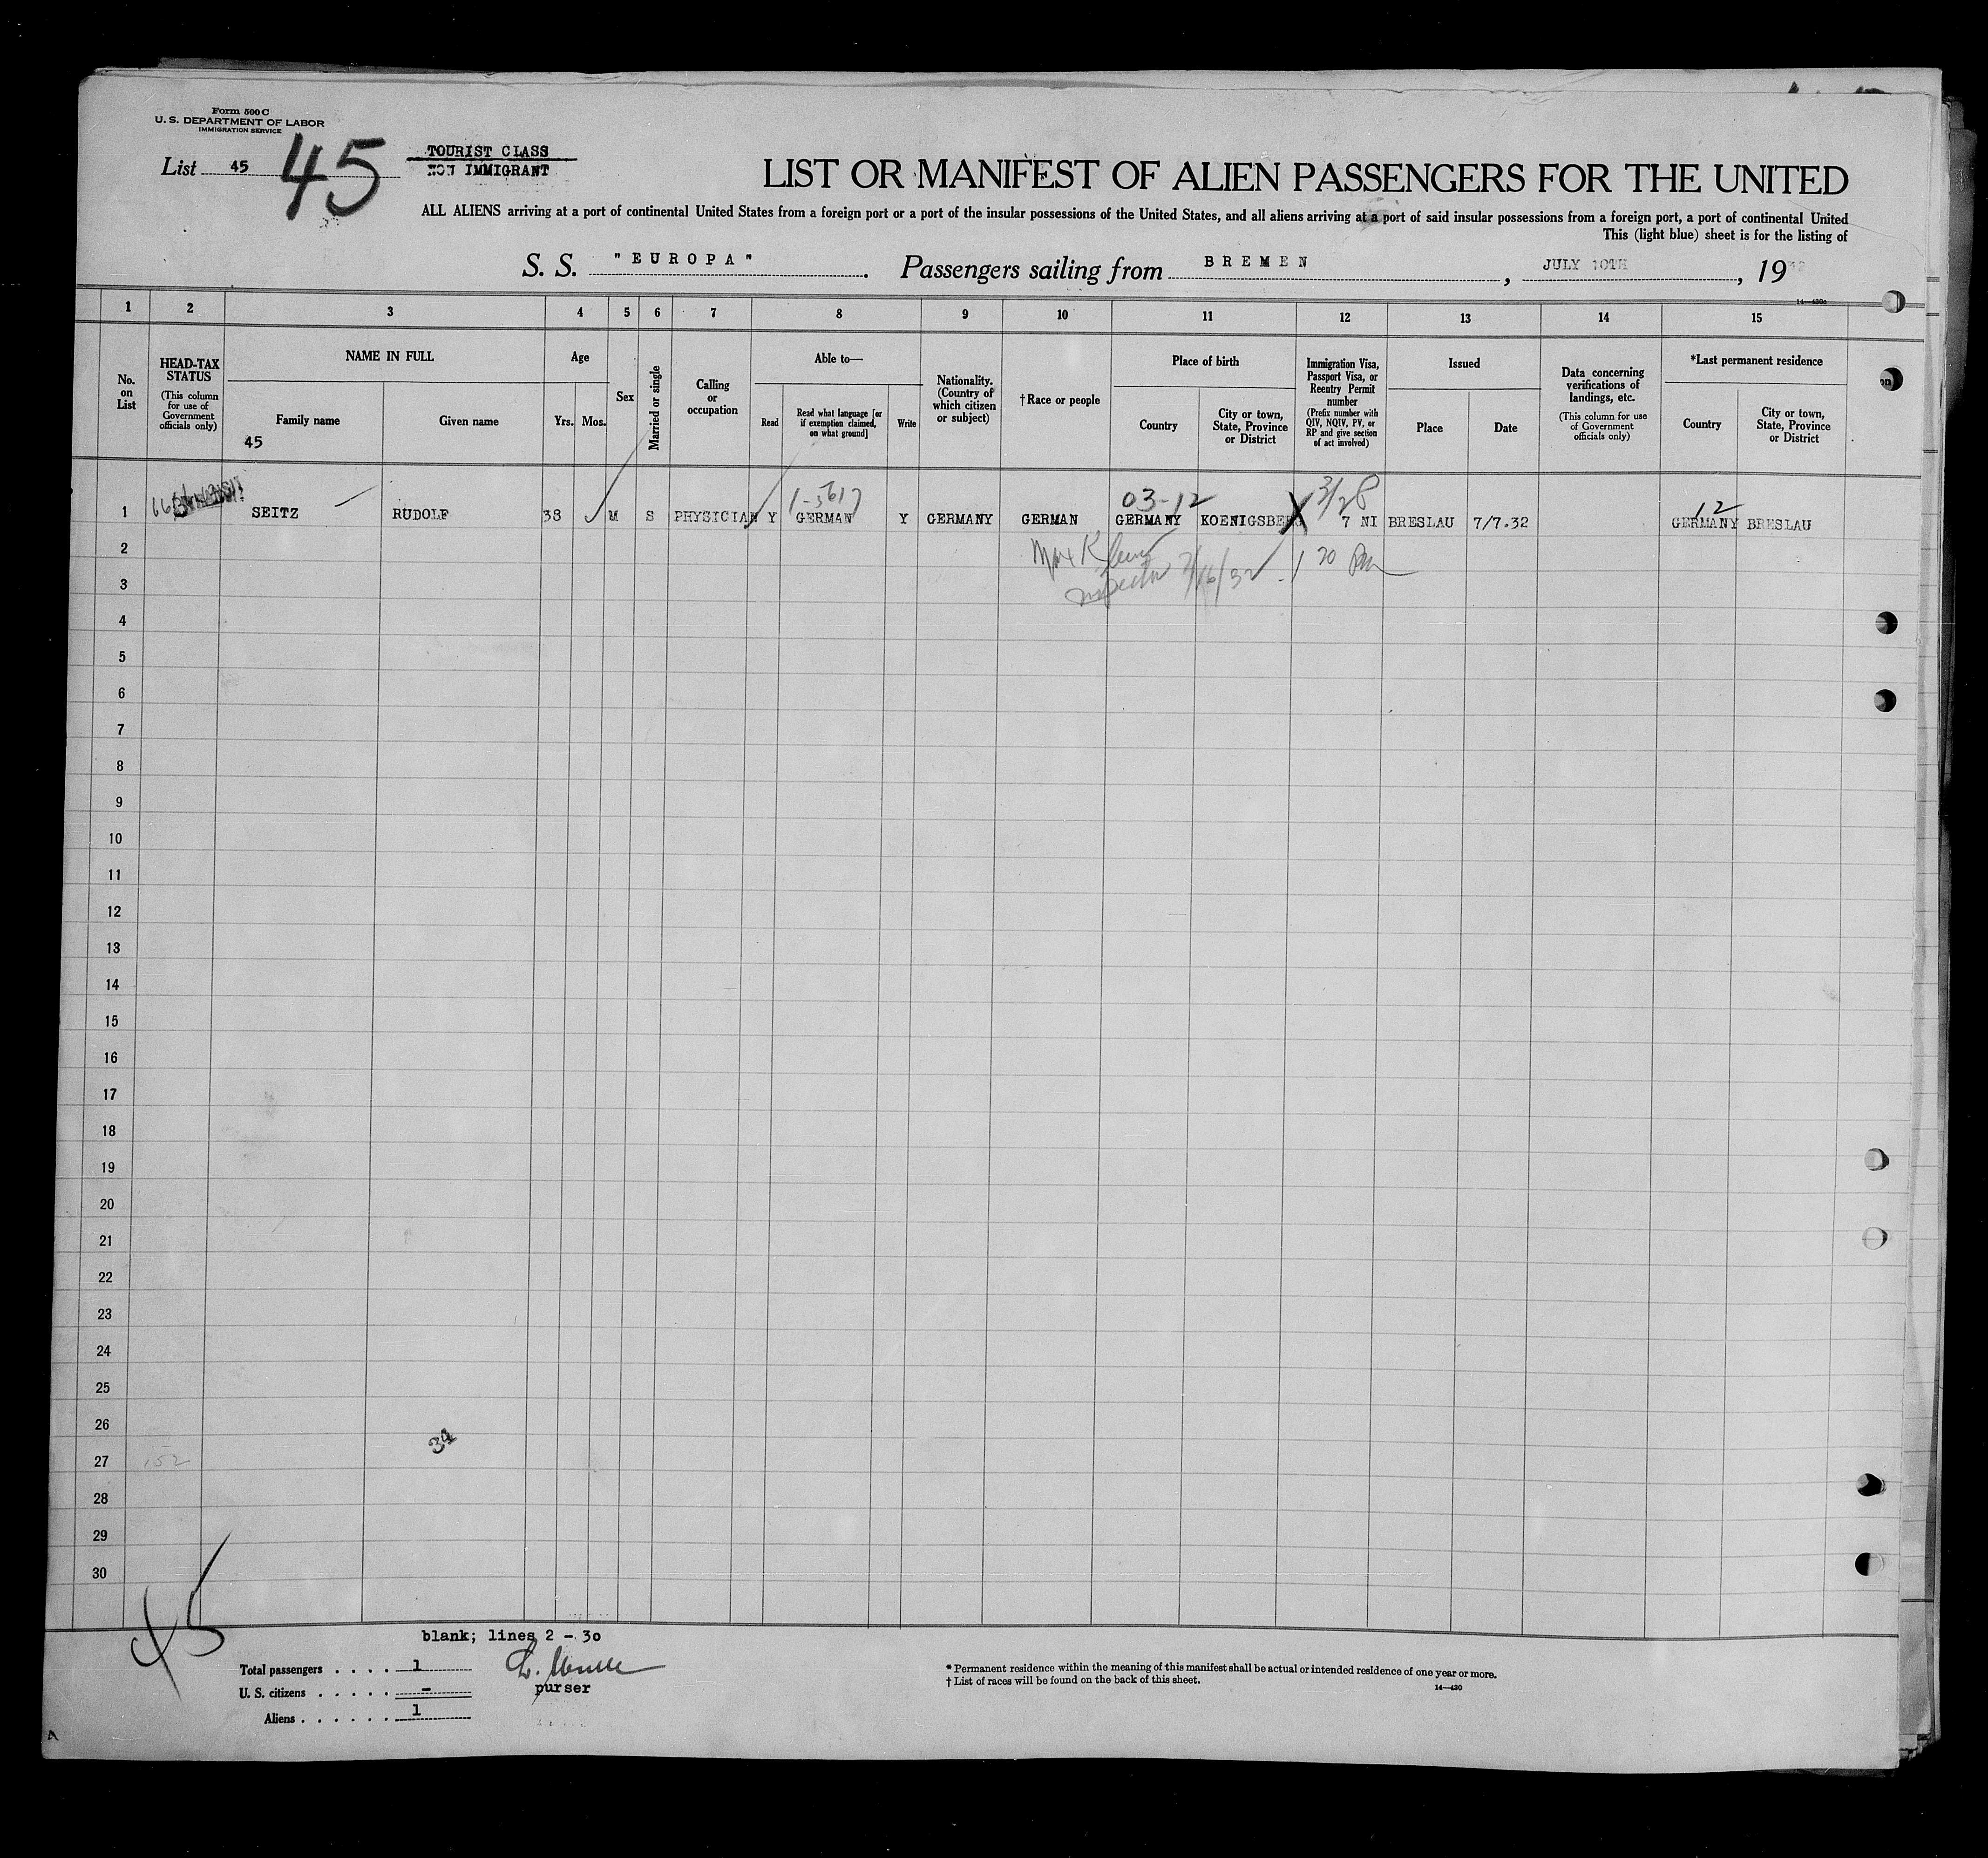 Form 500 C
U. S. DEPARTMENT OF LABOR
IMMIGRATION SERVICE
List 45 45
TOURIST CLASS
NON IMMIGRANT
LIST OR MANIFEST OF ALIEN PASSENGERS FOR THE UNITED
ALL ALIENS arriving at a port of continental United States from a foreign port or a port of the insular possessions of the United States, and all aliens arriving at a port of said insular possessions from a foreign port, a port of continental United
This (light blue) sheet is for the listing of
S. S. "EUROPA". Passengers sailing from BREMEN, JULY 10TH, 19
14—430a
1 2 3 4 5 6 7 8 9 10 11 12 13 14 15
No. on List
HEAD-TAX STATUS
(This column for use of Government officials only)
NAME IN FULL
Family name
Given name
45
Age
Yrs.
Mos.
Sex
Married or single
Calling or occupation
Able to—
Read
Read what language [or if exemption claimed, on what ground]
Write
Nationality. (Country of which citizen or subject)
†Race or people
Place of birth
Country
City or town, State, Province or District
Immigration Visa, Passport Visa, or Reentry Permit number
(Prefix number with QIV, NQIV, PV, or RP and give section of act involved)
Issued
Place
Date
Data concerning verifications of landings, etc.
(This column for use of Government officials only)
*Last permanent residence
Country
City or town, State, Province or District
on
03-12 3/28 12
1 SEITZ RUDOLF 38 M S PHYSICIAN Y GERMAN Y GERMANY GERMAN GERMANY KOENIGSBERG 7 NI BRESLAU 7/7.32 GERMANY BRESLAU
2
Inspector 7/16/32 1 20 Pm
3
4
5
6
7
8
9
10
11
12
13
14
15
16
17
18
19
20
21
22
23
24
25
26
34
27 152
28
29
30
45
blank; lines 2 - 30
Total passengers . . . . 1
purser
U. S. citizens . . . . . -
Aliens . . . . . . 1
* Permanent residence within the meaning of this manifest shall be actual or intended residence of one year or more.
† List of races will be found on the back of this sheet.
14—430